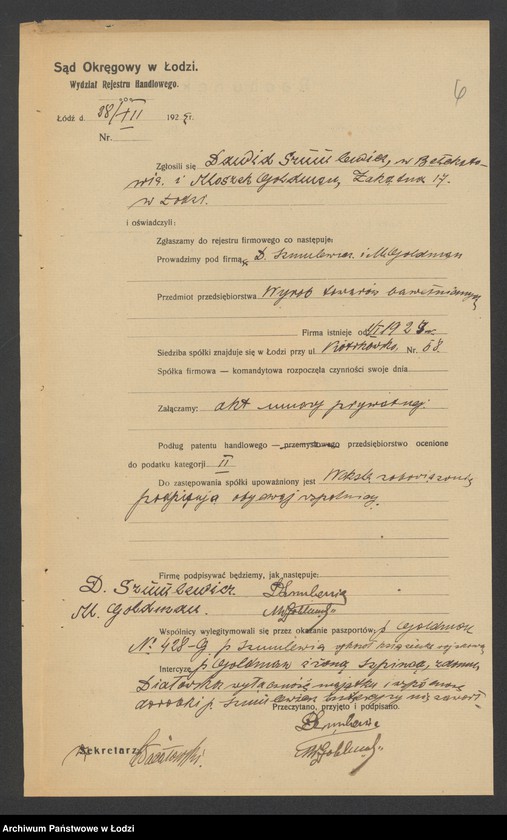 6
Sąd Okręgowy w Łodzi.
Wydział Rejestru Handlowego.
Łódź d. 28/XII 1925r.
Nr.
Zgłosili się Dawid Szmulewicz, w
i Moszek Goldman, Zakątna 17.
w Łodzi.
i oświadczyli:
Zgłaszamy do rejestru firmowego co następuje:
Prowadzimy pod firmą D. Szmulewicz i M. Goldman
Przedmiot przedsiębiorstwa Wyrób towarów bawełnianych
Firma istnieje od
Siedziba spółki znajduje się w Łodzi przy ul Piotrkowska, Nr. 58.
Spółka firmowa — komandytowa rozpoczęła czynności swoje dnia
Załączamy: akt umowy prywatnej.
Podług patentu handlowego — przemysłowego przedsiębiorstwo ocenione
do podatku kategorji II
Do zastępowania spółki upoważniony jest Weksle, zobowiązania
podpisują obydwaj wspólnicy.
Firmę podpisywać będziemy, jak następuje:
D. Szmulewicz DSzmulewicz
M. Goldman MGoldman
Wspólnicy wylegitymowali się przez okazanie paszportów, p. Goldman
№ 428-G, p. Szmulewicz
Intercyzę p. Goldman z żoną Szprincą, z domu
wyłączność majątku i wspólność
p. Szmulewicz intercyzy nie zawarł.
Przeczytano, przyjęto i podpisano.
DSzmulewicz
Sekretarz
MGoldman
Archiwum Państwowe w Łodzi